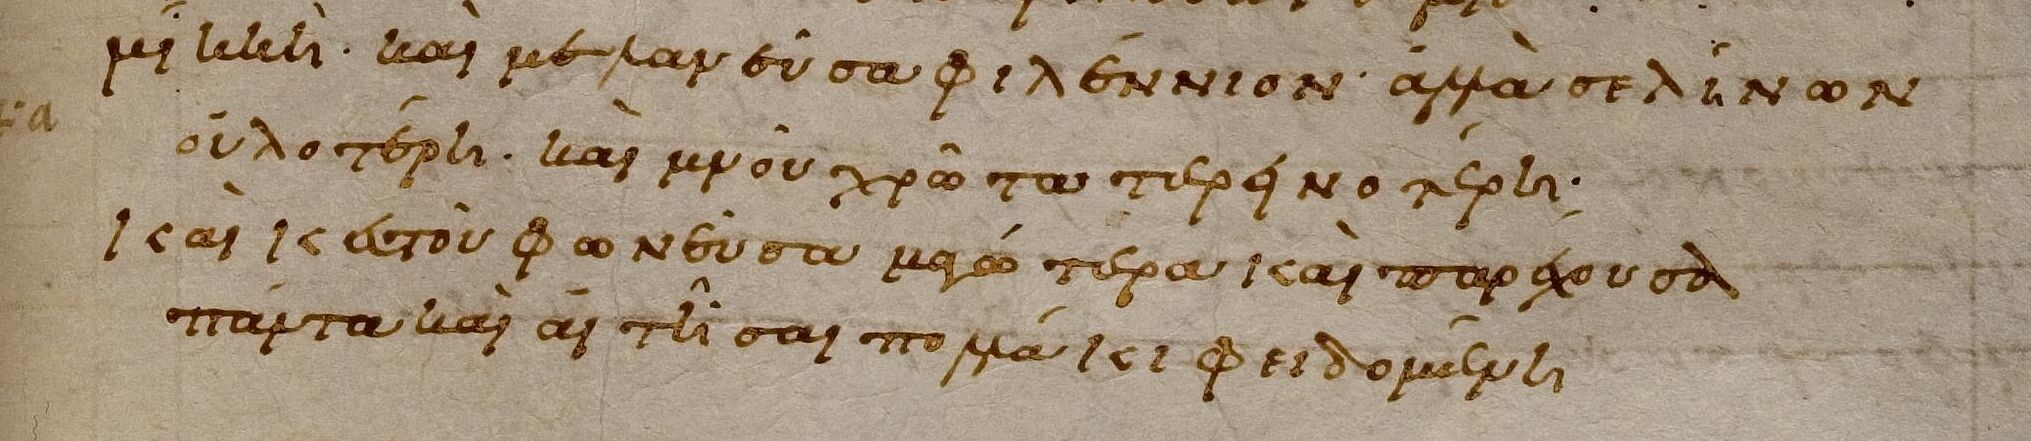 μικκὴ· καὶ μελανεῦσα φιλέννιον· ἀλλὰ σελίνων
οὐλοτέρη· καὶ μνοῦ χρῶτα τερεινοτέρη·
καὶ κεστοῦ φωνεῦσα μαγώτερα καὶ παρέχουσα
πάντα καὶ αἰτῆσαι πολλάκι φειδομένη